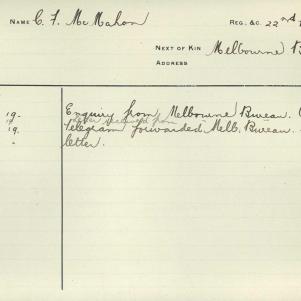 NAME C. F. McMahon REG. &C. 22nd
NEXT OF KIN Melbourne B
ADDRESS
19. Enquiry from Melbourne Bureau.
letter received from
19. Telegram forwarded Melb. Bureau.
" letter.